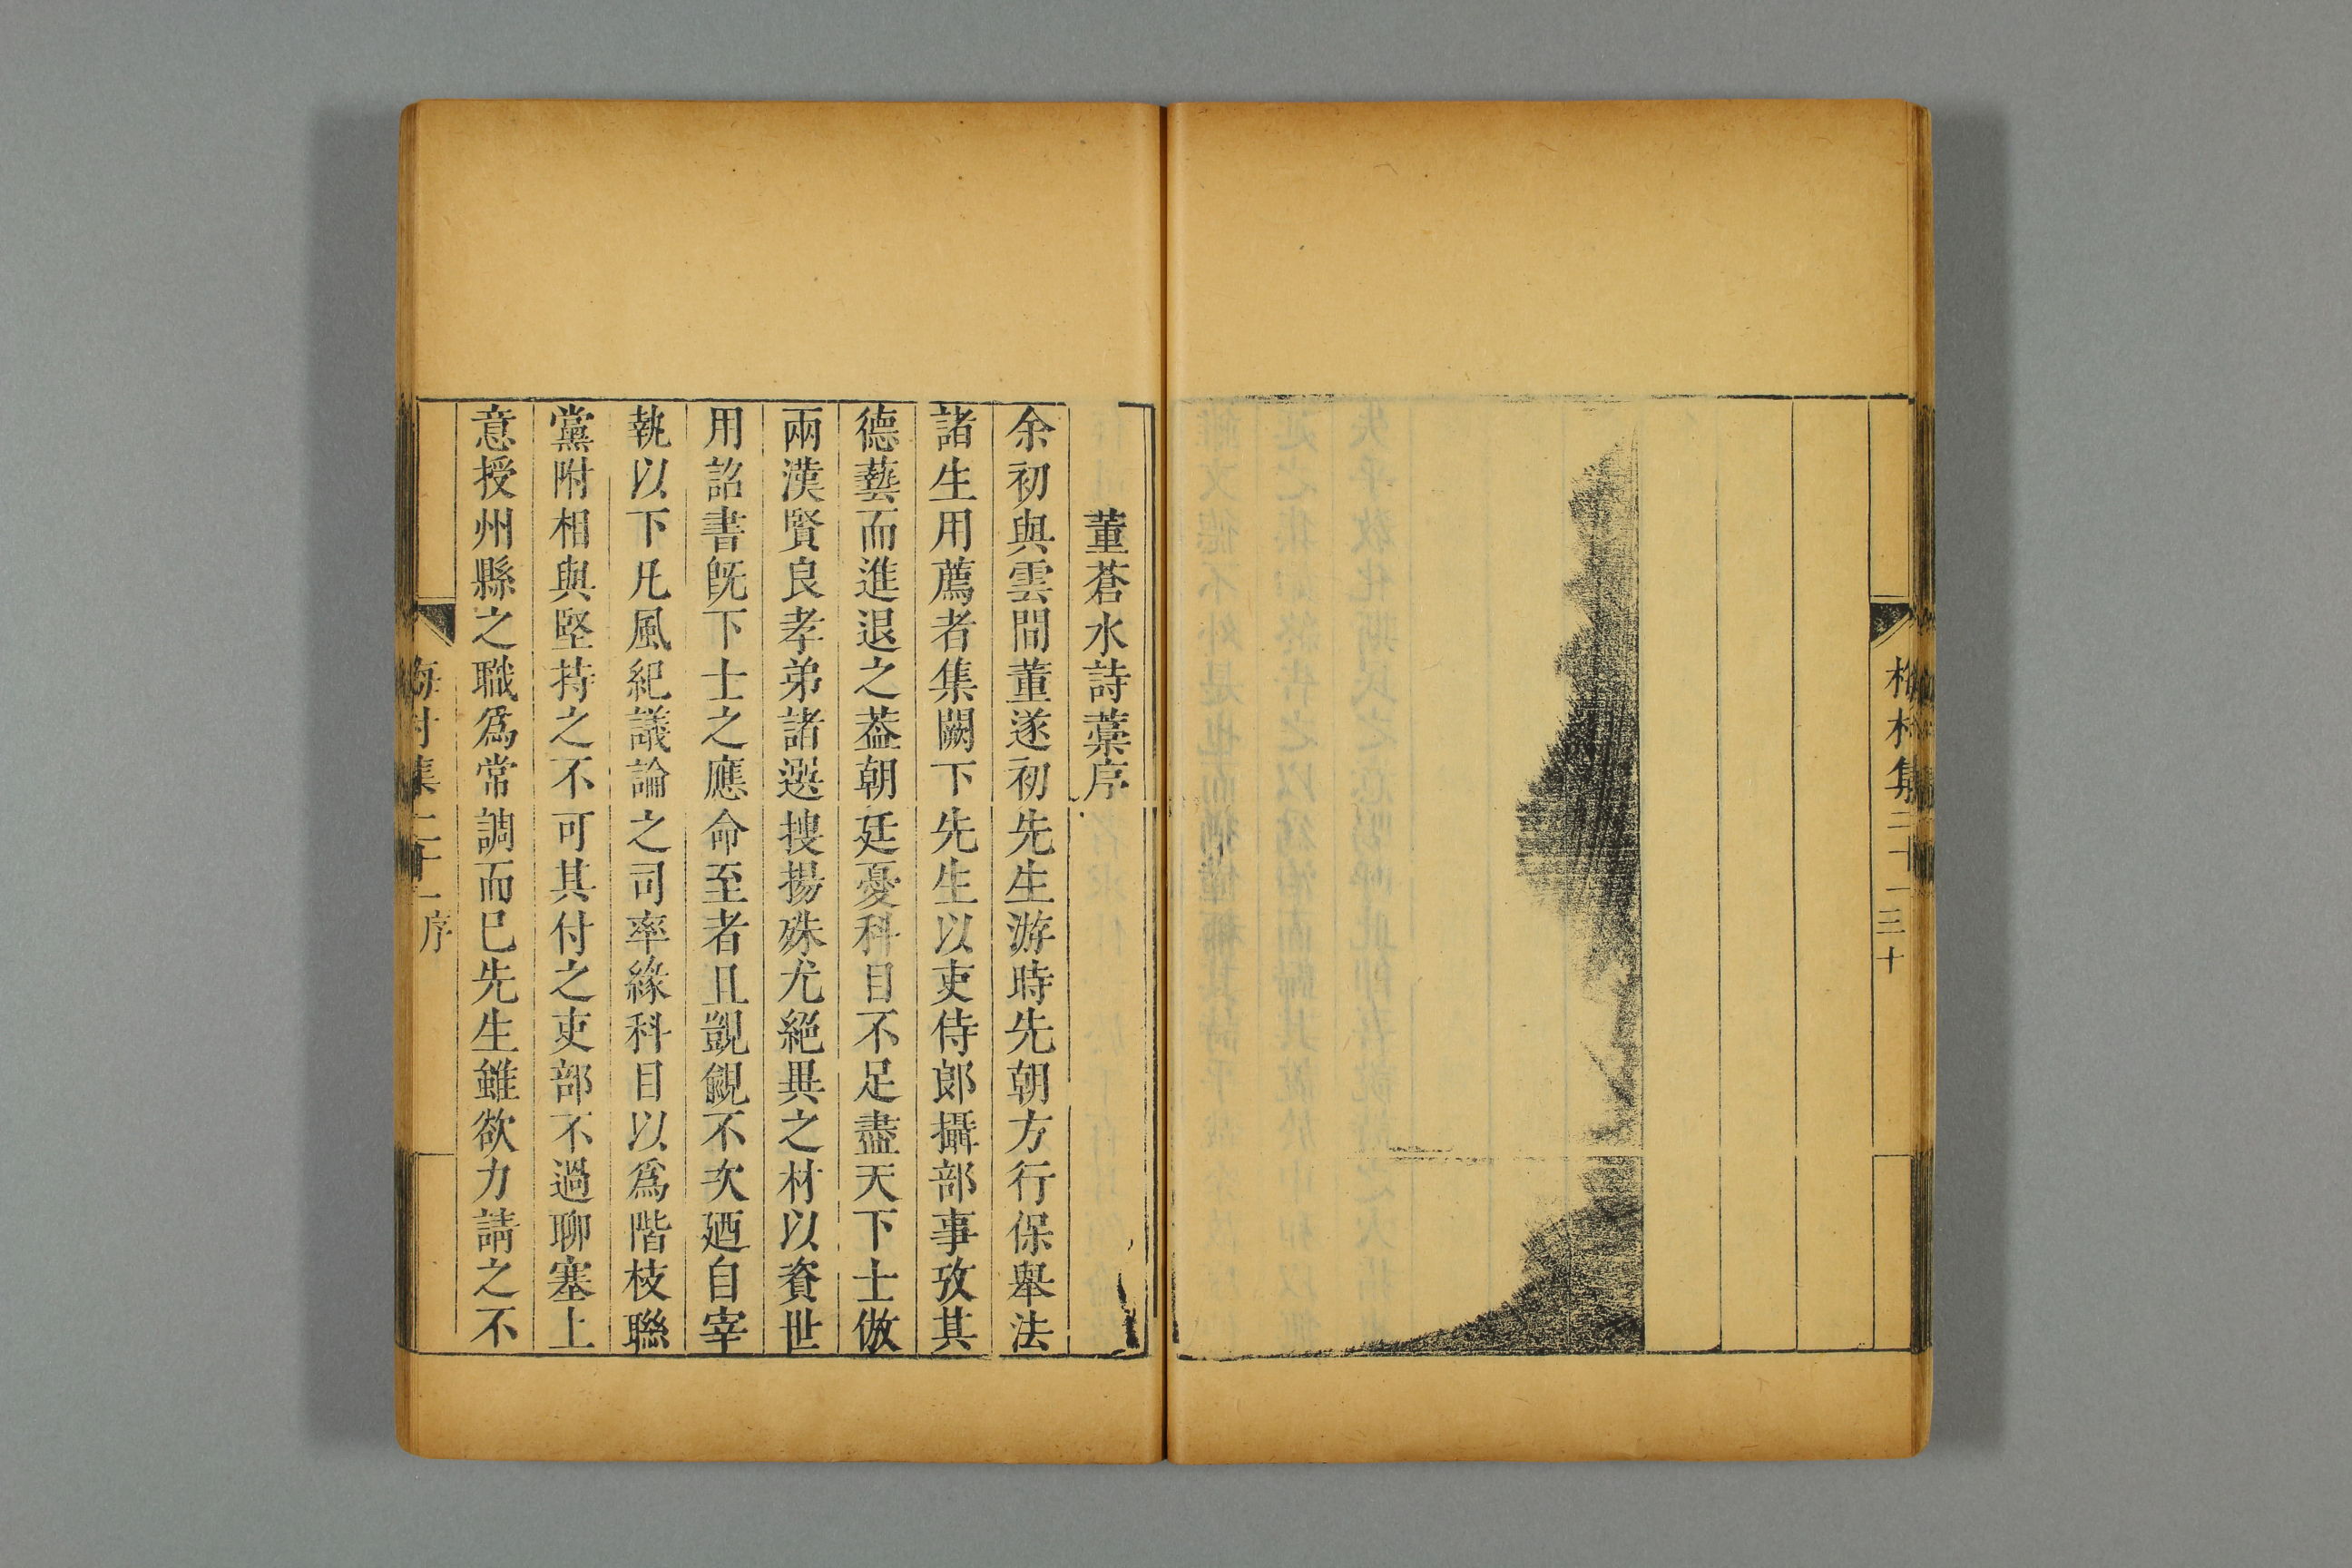 梅村集二十一 三十
董蒼水詩藁序
余初與雲間董遂初先生游時先朝方行保舉法
諸生用薦者集闕下先生以吏侍郎攝部事攷其
德藝而進退之葢朝廷憂科目不足盡天下士倣
兩漢賢良孝弟諸選搜揚殊尤絕異之材以資世
用詔書旣下士之應命至者且覬覦不次廼自宰
執以下凡風紀議論之司率緣科目以爲階枝聯
黨附相與堅持之不可其付之吏部不過聊塞上
意授州縣之職爲常調而已先生雖欲力請之不
梅村集二十一序